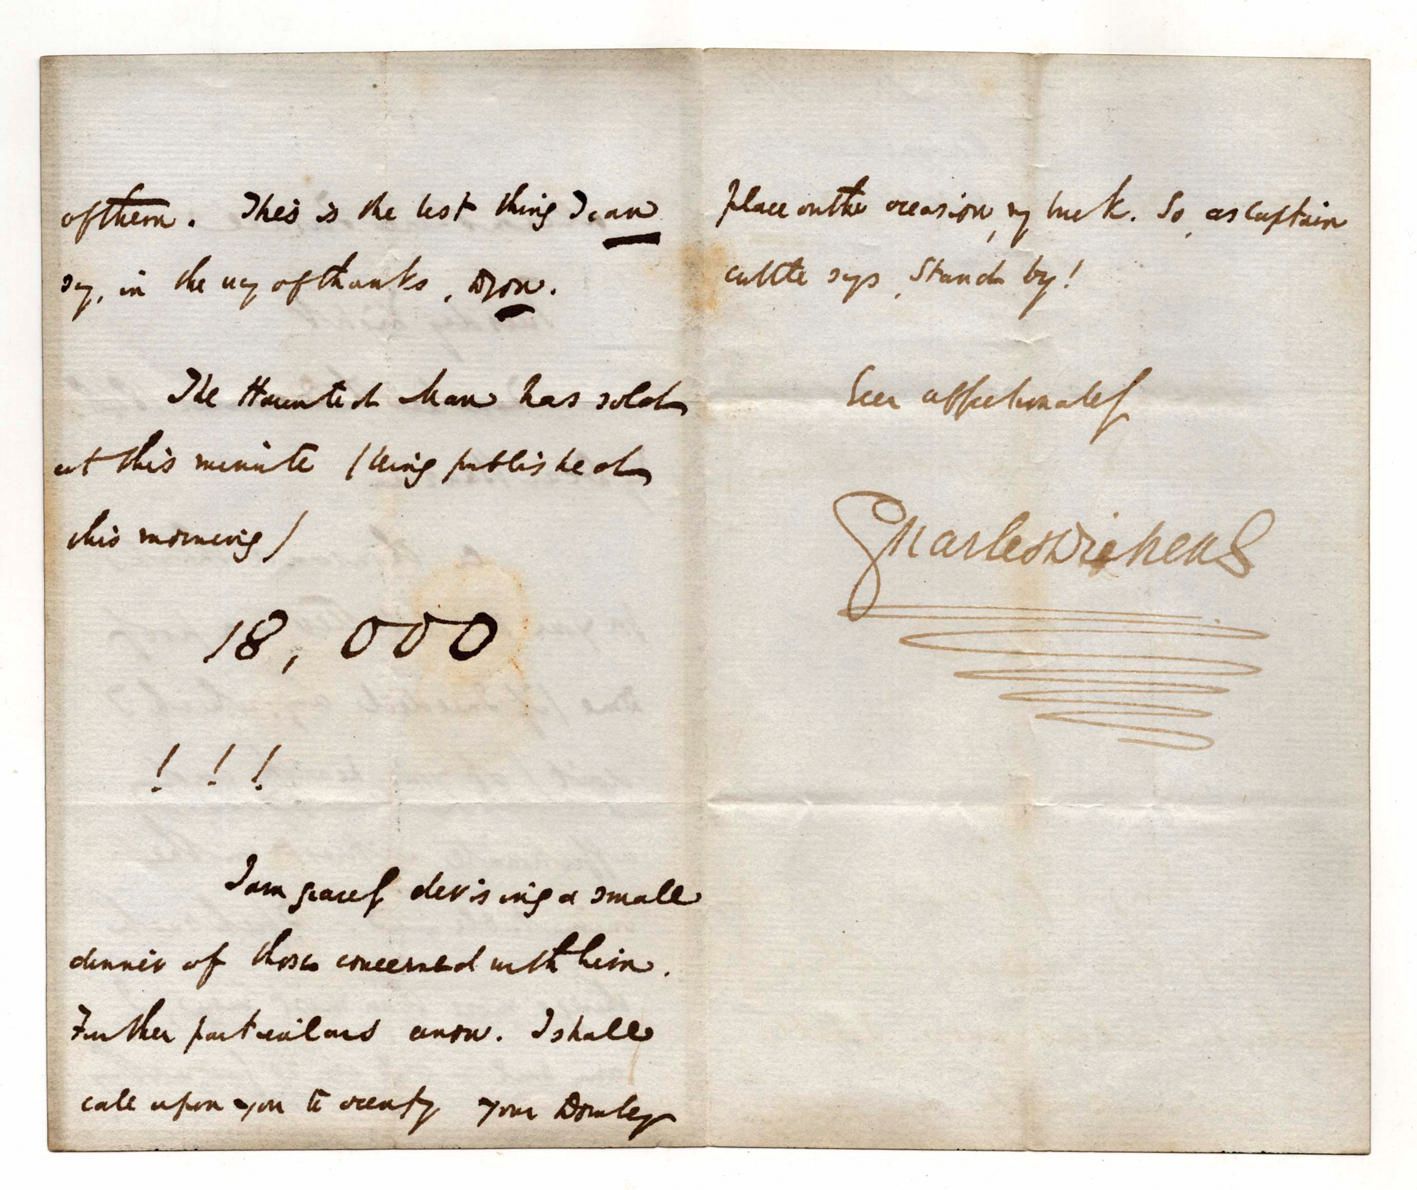 of them. This is the last thing I can
say, in the way of thanks, Dyou.
The Haunted Man has sold
at this minute (being published
this morning)
18,000
! ! !
I am gravely devising a small
dinner of those concerned with him.
Further particulars anon. I shall
call upon you to occupy your Dombey
place on the occasion, my buck. So, as Captain
Cuttle says, Stand by!
Ever affectionately
Charles Dickens